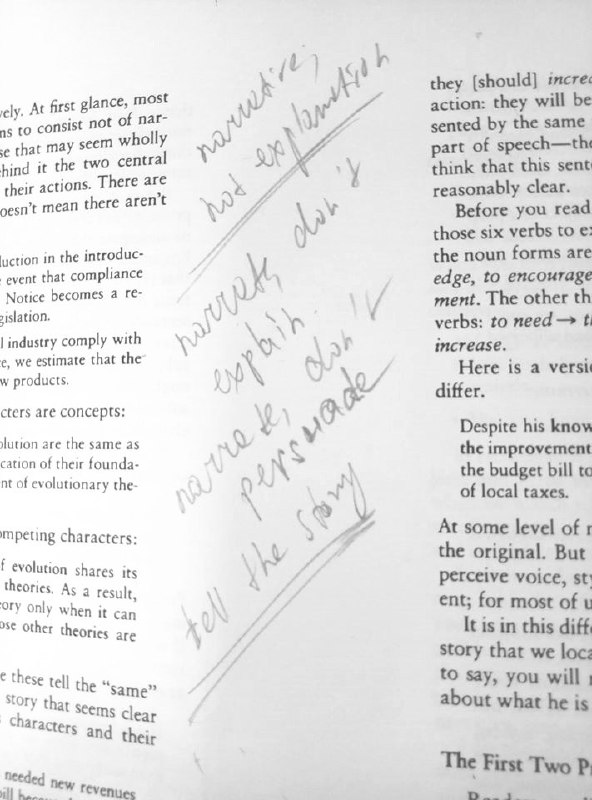 vely. At first glance, most
ns to consist not of nar-
se that may seem wholly
hind it the two central
their actions. There are
oesn't mean there aren't
luction in the introduc-
e event that compliance
Notice becomes a re-
gislation.
l industry comply with
ce, we estimate that the
w products.
cters are concepts:
olution are the same as
cation of their founda-
nt of evolutionary the-
ompeting characters:
f evolution shares its
theories. As a result,
eory only when it can
ose other theories are
e these tell the “same”
story that seems clear
s characters and their
needed new revenues
narrative,
not explanation
narrate, don't
explain.
narrate, don't
persuade
tell the story
they [should] increa
action: they will be
sented by the same
part of speech—the
think that this sent
reasonably clear.
Before you read
those six verbs to ex
the noun forms are
edge, to encourage
ment. The other th
verbs: to need → th
increase.
Here is a versi
differ.
Despite his know
the improvement
the budget bill to
of local taxes.
At some level of
the original. But
perceive voice, sty
ent; for most of u
It is in this diff
story that we loca
to say, you will
about what he is
The First Two P